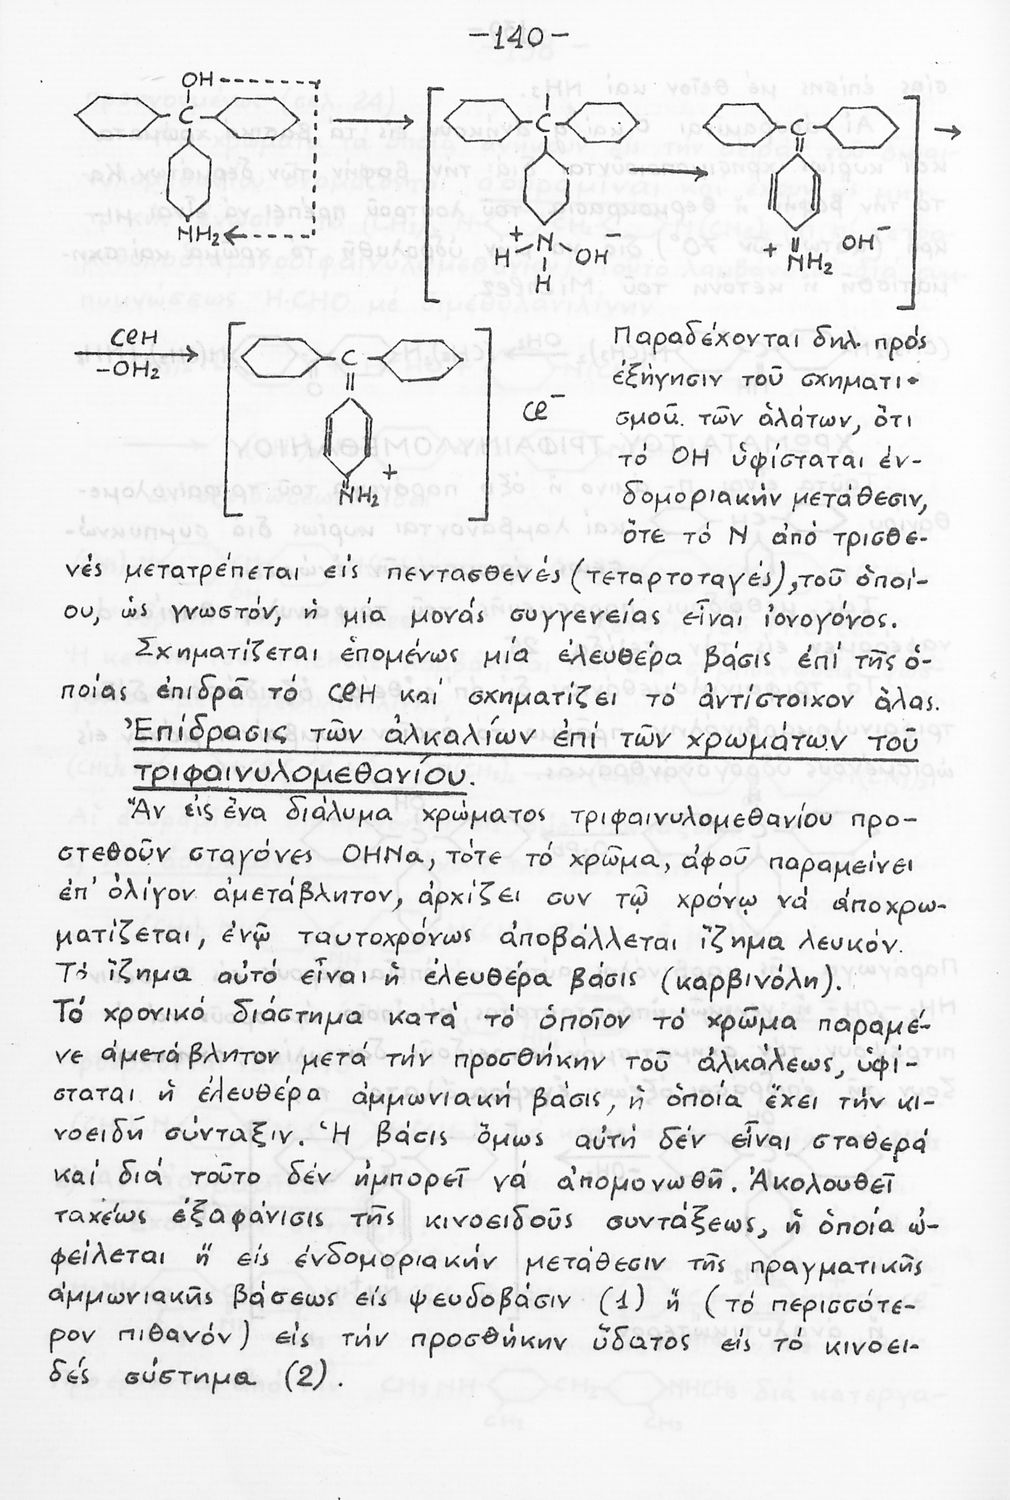 -140-
OH
C
NH₂
C
+
H-N-OH⁻
H
C
+
NH₂
OH⁻
ClH
-OH₂
C
+
NH₂
Cl⁻
Παραδέχονται δηλ. πρός
ἐξήγησιν τοῦ σχηματι-
σμοῦ. τῶν ἁλάτων, ὅτι
τό OH ὑφίσταται ἐν-
δομοριακήν μετάθεσιν,
ὅτε τό N ἀπό τρισθε-
νές μετατρέπεται εἰς πεντασθενές (τεταρτοταγές), τοῦ ὁποί-
ου, ὡς γνωστόν, ἡ μία μονάς συγγενείας εἶναι ἰονογόνος.
Σχηματίζεται ἑπομένως μία ἐλευθέρα βάσις ἐπί τῆς ὁ-
ποίας ἐπιδρᾶ τό ClH καί σχηματίζει τό ἀντίστοιχον ἅλας.
Ἐπίδρασις τῶν ἀλκαλίων ἐπί τῶν χρωμάτων τοῦ
τριφαινυλομεθανίου.
Ἄν εἰς ἕνα διάλυμα χρώματος τριφαινυλομεθανίου προ-
στεθοῦν σταγόνες OHNa, τότε τό χρῶμα, ἀφοῦ παραμείνει
ἐπ' ὀλίγον ἀμετάβλητον, ἀρχίζει συν τῷ χρόνῳ νά ἀποχρω-
ματίζεται, ἐνῷ ταυτοχρόνως ἀποβάλλεται ἵζημα λευκόν.
Τό ἵζημα αὐτό εἶναι ἡ ἐλευθέρα βάσις (καρβινόλη).
Τό χρονικό διάστημα κατά τό ὁποῖον τό χρῶμα παραμέ-
νε ἀμετάβλητον μετά τήν προσθήκην τοῦ ἀλκάλεως, ὑφί-
σταται ἡ ἐλευθέρα ἀμμωνιακή βάσις, ἡ ὁποία ἔχει τήν κι-
νοειδῆ σύνταξιν. Ἡ βάσις ὅμως αὐτή δέν εἶναι σταθερά
καί διά τοῦτο δέν ἠμπορεῖ νά ἀπομονωθῆ. Ἀκολουθεῖ
ταχέως ἐξαφάνισις τῆς κινοειδοῦς συντάξεως, ἡ ὁποία ὠ-
φείλεται ἤ εἰς ἐνδομοριακήν μετάθεσιν τῆς πραγματικῆς
ἀμμωνιακῆς βάσεως εἰς ψευδοβάσιν (1) ἤ (τό περισσότε-
ρον πιθανόν) εἰς τήν προσθήκην ὕδατος εἰς τό κινοει-
δές σύστημα (2).